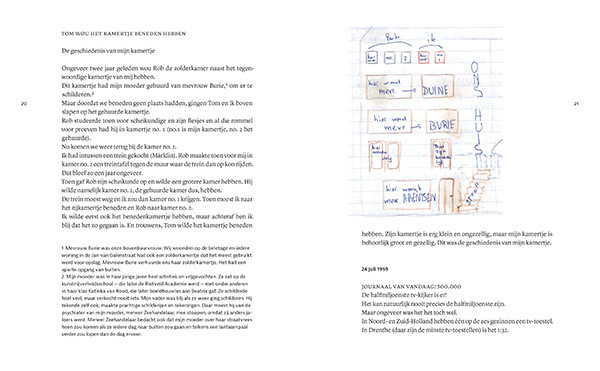 TOM WOU HET KAMERTJE BENEDEN HEBBEN
De geschiedenis van mijn kamertje
Ongeveer twee jaar geleden wou Rob de zolderkamer naast het tegen-
woordige kamertje van mij hebben.
Dit kamertje had mijn moeder gehuurd van mevrouw Burie,¹ om er te
schilderen.²
Maar doordat we beneden geen plaats hadden, gingen Tom en ik boven
slapen op het gehuurde kamertje.
Rob studeerde toen voor scheikundige en zijn flesjes en al die rommel
voor proeven had hij in kamertje no. 1 (no.1 is mijn kamertje, no. 2 het
gehuurde).
Nu komen we weer terug bij de kamer no. 2.
Ik had intussen een trein gekocht (Märklin). Rob maakte toen voor mij in
kamer no. 2 een treintafel tegen de muur waar de trein dan op kon rijden.
Dat bleef zo een jaar ongeveer.
Toen gaf Rob zijn scheikunde op en wilde een grotere kamer hebben. Hij
wilde namelijk kamer no. 2, de gehuurde kamer dus, hebben.
De trein moest weg en ik zou dan kamer no. 1 krijgen. Toen moest ik naar
het rijkamertje beneden en Rob naar kamer no. 2.
Ik wilde eerst ook het benedenkamertje hebben, maar achteraf ben ik
blij dat het zo gegaan is. En trouwens, Tom wilde het kamertje beneden
1 Mevrouw Burie was onze bovenbuurvrouw. Wij woonden op de beletage en iedere
woning in de Jan van Galenstraat had ook een zolderkamertje dat het meest gebruikt
werd voor opslag. Mevrouw Burie verhuurde ons haar zolderkamertje. Het had een
aparte opgang van buiten.
2 Mijn moeder was in haar jonge jaren heel artistiek en vrijgevochten. Ze zat op de
kunstnijverheidsschool – die later de Rietveld Academie werd – met onder anderen
in haar klas Katinka van Rood, die later boetiekhoudster aan
heel veel, maar verkocht nooit iets. Mijn vader was blij als ze weer ging schilderen. Hij
tekende zelf ook, maakte prachtige schilderijen en tekeningen. Daar moest hij van de
psychiater van mijn moeder, meneer Zeehandelaar, mee stoppen, omdat zij anders ja-
loers werd. Meneer Zeehandelaar bedacht ook dat mijn moeder over haar straatvrees
heen zou komen als ze iedere dag naar buiten zou gaan en telkens een lantaarnpaal
verder zou kopen dan de dag ervoor.
20
Burie
ik
no 2
no 1
hier woont
mevr DUINE
hier woont
mevr BURIE
hier
hier woont
mevr ARENTSEN
ONS HUIS
21
hebben. Zijn kamertje is erg klein en ongezellig, maar mijn kamertje is
behoorlijk groot en gezellig. Dit was de geschiedenis van mijn kamertje.
24 juli 1959
JOURNAAL VAN VANDAAG: 500.000
De halfmiljoenste tv-kijker is er!
Het kan natuurlijk nooit precies de halfmiljoenste zijn.
Maar ongeveer was het het toch wel.
In Noord- en Zuid-Holland hebben één op de zes gezinnen een tv-toestel.
In Drenthe (daar zijn de minste tv-toestellen) is het 1:32.